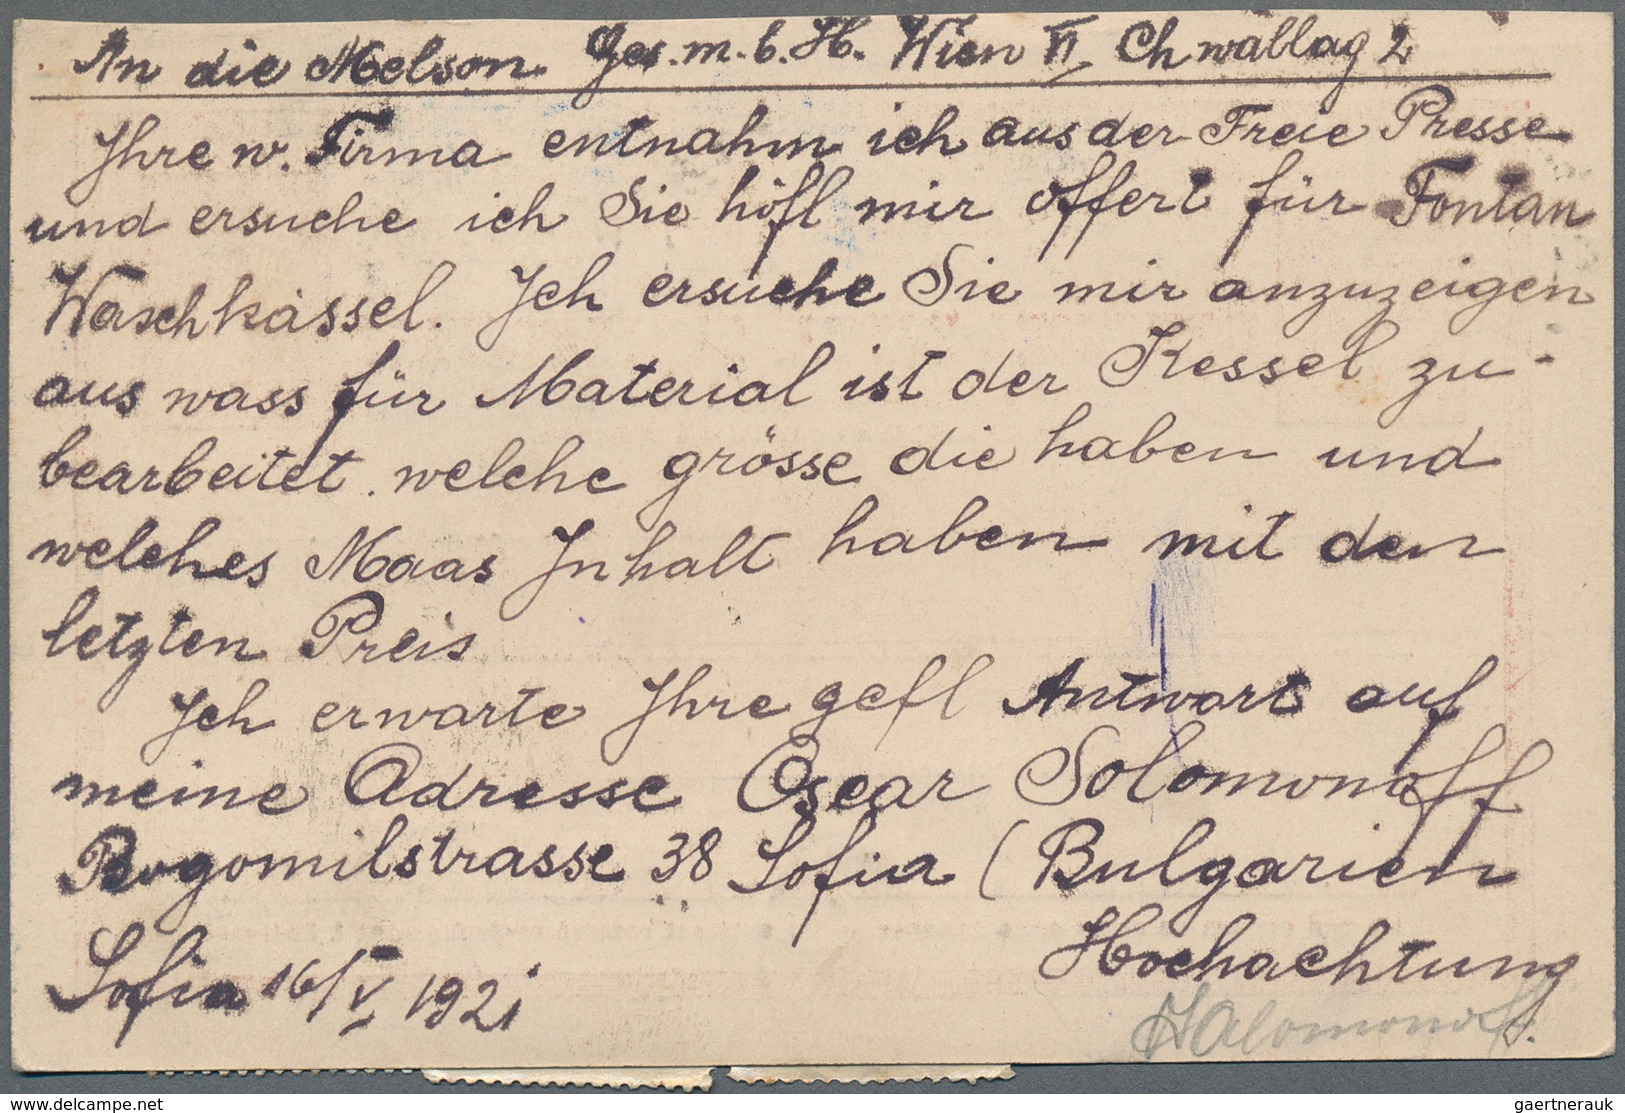 An die Melson Ges. m. b. H. Wien VI, Chwallag 2
Ihre w. Firma entnahm ich aus der Freie Presse
und ersuche ich Sie höfl mir offert für Fontan
Waschkässel. Ich ersuche Sie mir anzuzeigen
aus wass für Material ist der Kessel zu-
bearbeitet. welche grösse die haben und
welches Maas Inhalt haben mit den
letzten Preis
Ich erwarte Ihre gefl Antwort auf
meine Adresse Oscar Solomonoff
Bogomilstrasse 38 Sofia (Bulgarien
Hochachtung
Sofia 16/V 1921
Salomonoff.
www.delcampe.net
gaertnerauk